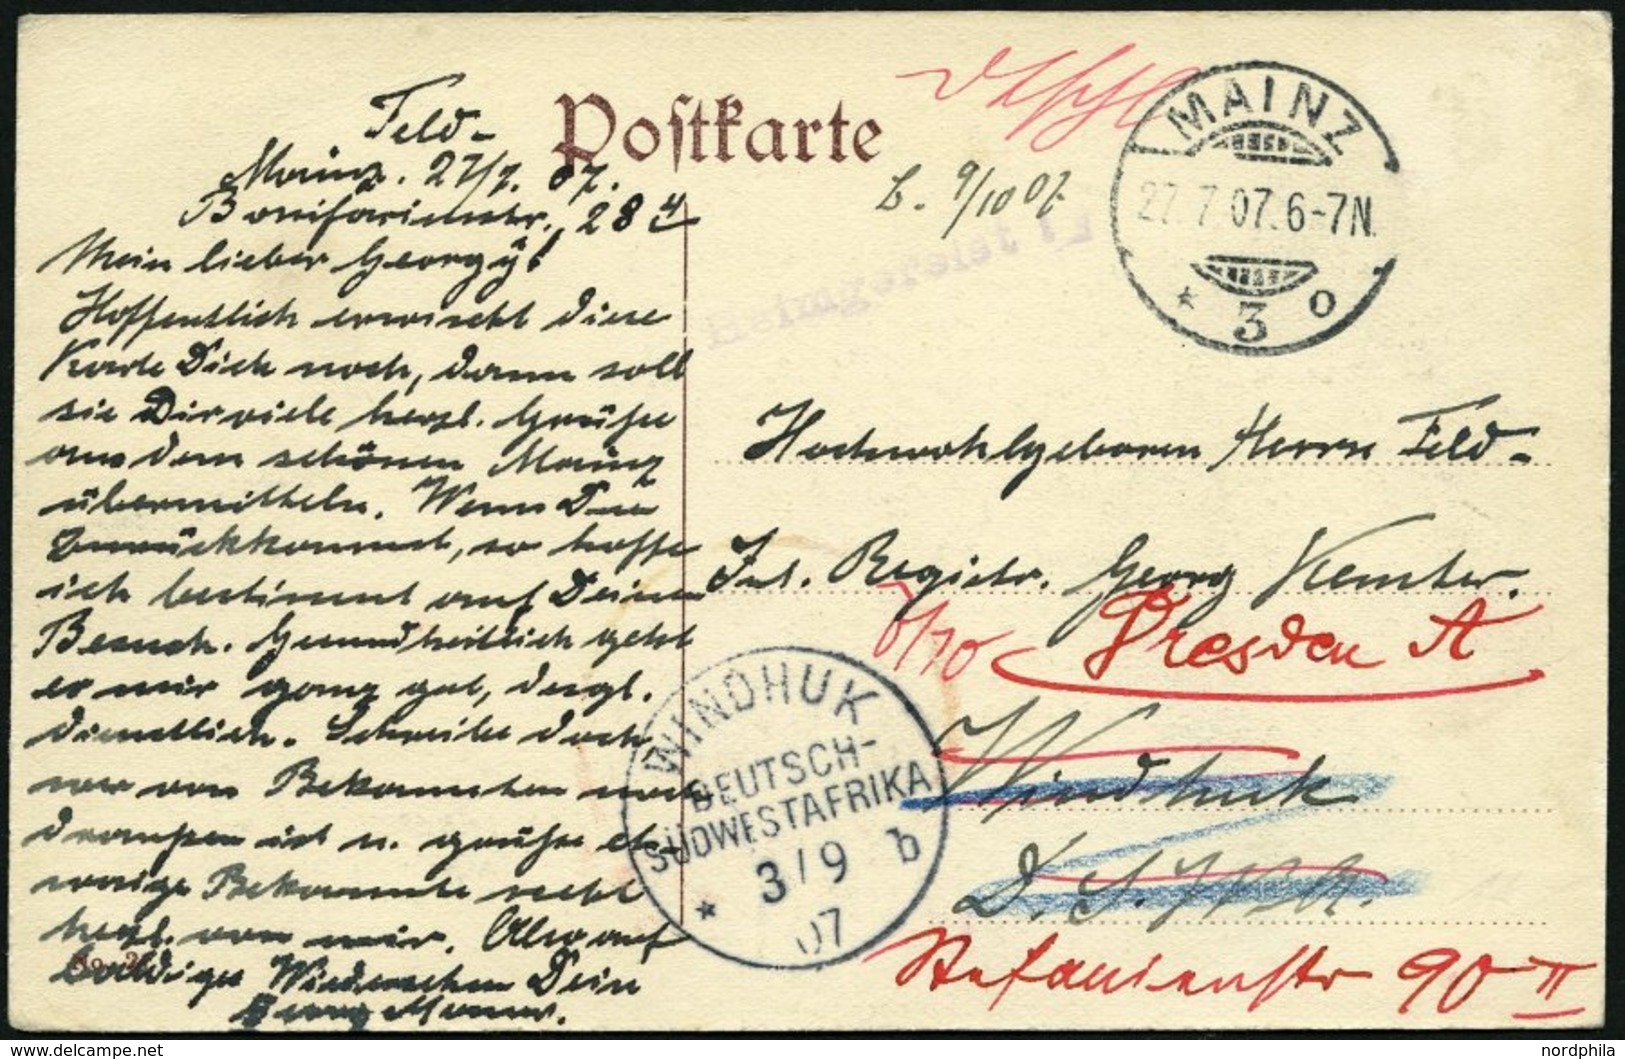 Postkarte
Feld-
Mainz. 27/7. 07.
Bonifaciusstr. 28 4
Mein lieber Georgy!
Hoffentlich erwischt diese
Karte Dich noch, dann soll
sie Dir viele herzl. Grüße
aus dem schönen Mainz
übermitteln. Wenn Du
zurückkommst, so hoffe
ich bestimmt auf Deinen
Besuch. Gesundheitlich geht
es mir ganz gut, desgl.
dienstlich. Schreibe doch
wer von Bekannten noch
draußen ist u. grüße et-
waige Bekannte recht
herzl. von mir. Also auf
baldiges Wiedersehen Dein
Georg
MAINZ
27.7.07.6-7N.
* 3 o
L. 9/10 07.
heimgereist
Hochwohlgeboren Herrn Feld-
Int. Registr. Georg Kemter.
6/10
Dresden A
Windhuk
D. S. W. A.
Stefanienstr 90 II
WINDHUK
DEUTSCH-
SÜDWESTAFRIKA
3/9 b
* 07
nordphila.com